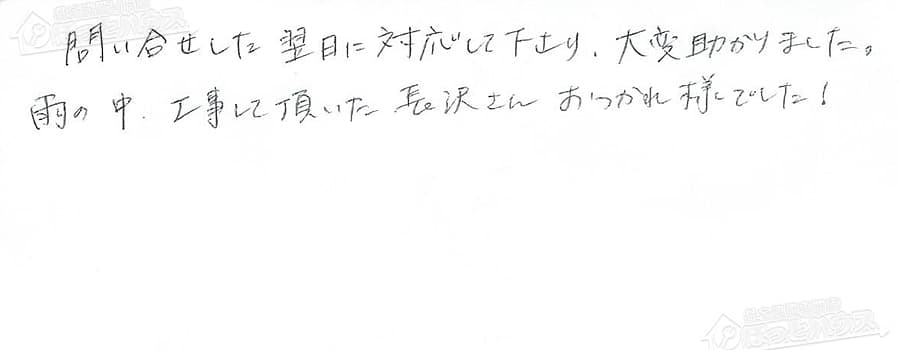 問い合せした翌日に対応して下さり、大変助かりました。
雨の中、工事して頂いた長沢さんおつかれ様でした!